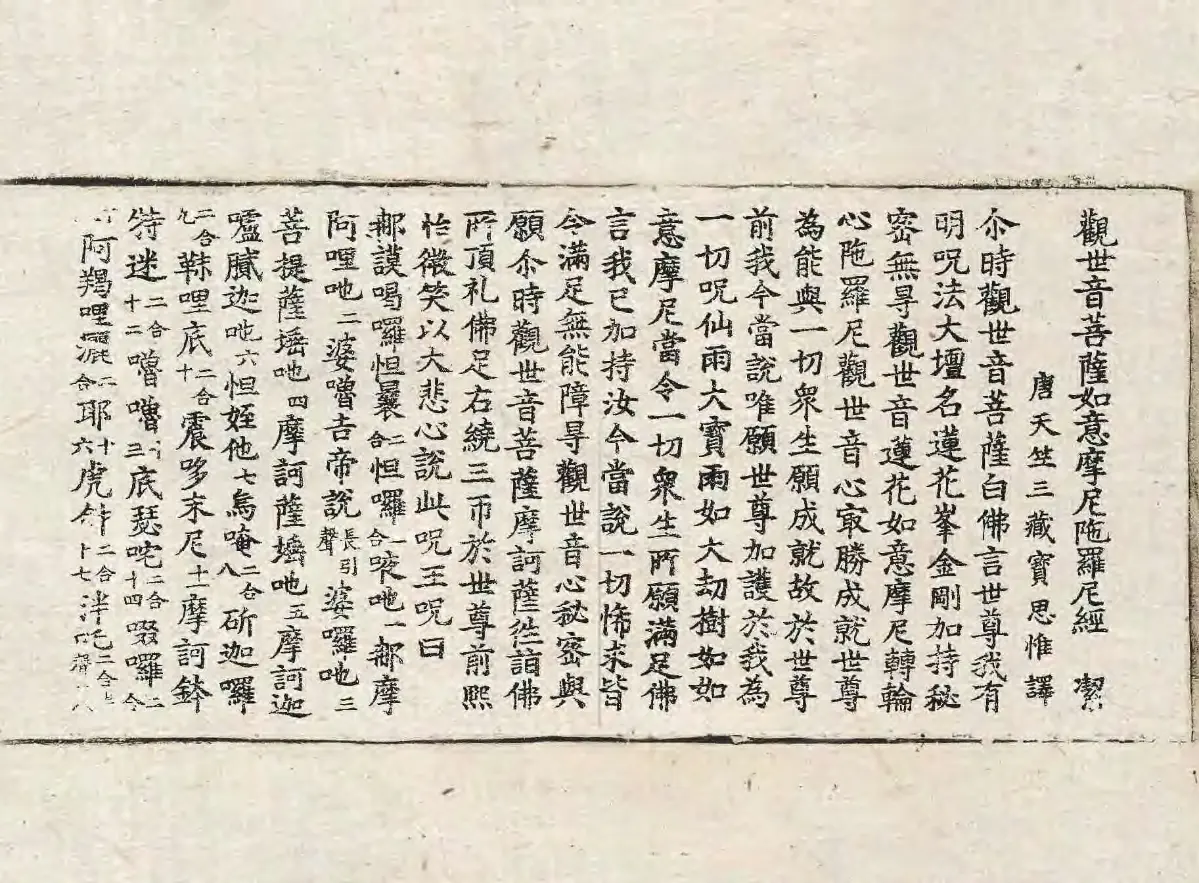 觀世音菩薩如意摩尼陁羅尼經 潔
唐天竺三藏寶思惟譯
尒時觀世音菩薩白佛言世尊我有
明呪法大壇名蓮花峯金剛加持秘
密無㝵觀世音蓮花如意摩尼轉輪
心陁羅尼觀世音心㝡勝成就世尊
為能與一切衆生願成就故於世尊
前我今當說唯願世尊加護於我為
一切呪仙雨大寶雨如大劫樹如如
意摩尼當令一切衆生所願滿足佛
言我已加持汝今當說一切悕求皆
令滿足無能障㝵觀世音心秘密與
願尒時觀世音菩薩摩訶薩往詣佛
所頂礼佛足右繞三帀於世尊前熙
怡微笑以大悲心說此呪王呪曰
那謨喝囉怛曩二合怛囉二合夜吔一那摩
阿哩吔二婆嚕吉帝說長引聲婆囉吔三
菩提薩埵吔四摩訶薩埵吔五摩訶迦
嚧膩迦吔六怛姪他七烏唵八二合斫迦囉
二合九靺哩底二合十震哆末尼十一摩訶鉢
特迷二合十二嚕嚕十三底瑟咤二合十四啜囉二
阿羯哩灑二合耶十六虎𤙖二合十七泮吒